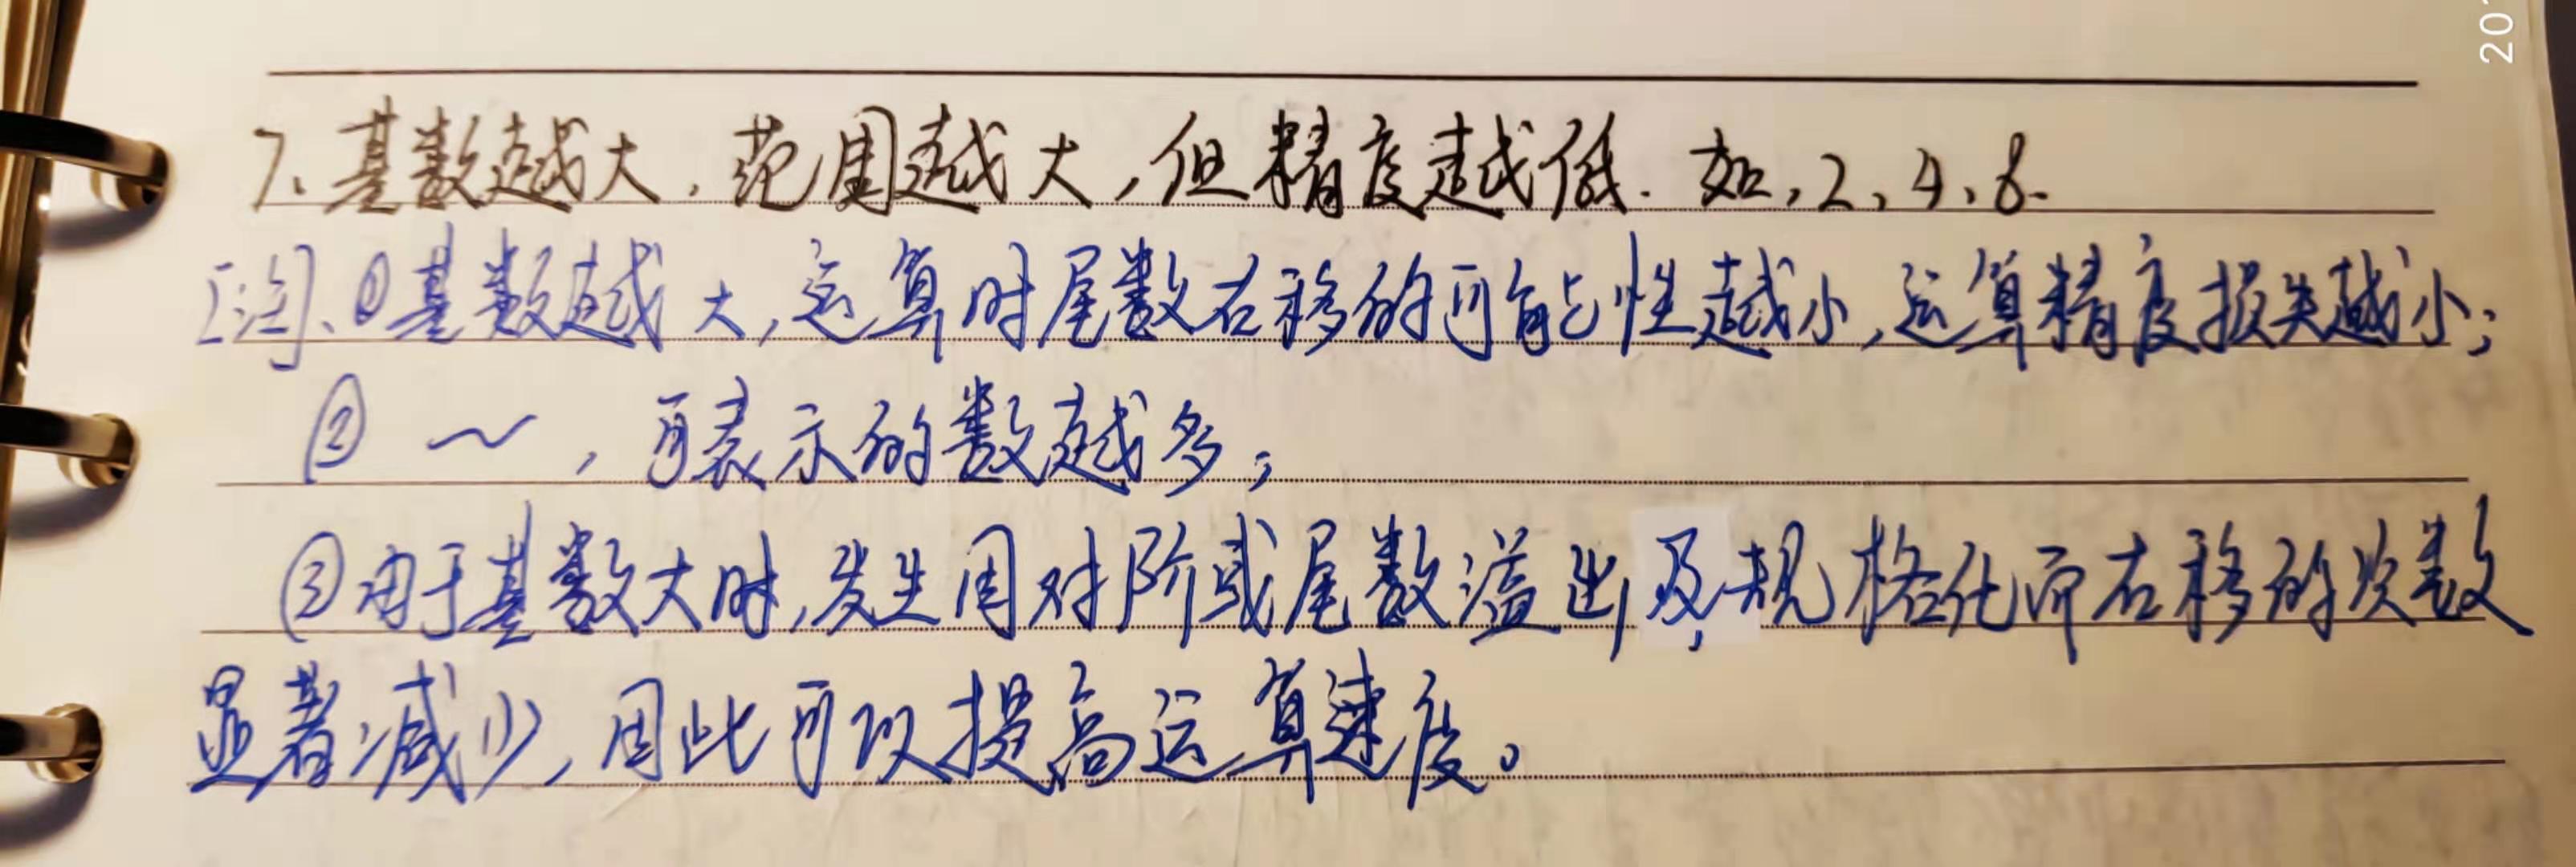 20
7、基数越大，范围越大，但精度越低．如，2、4、8.
[注]、①基数越大，运算时尾数右移的可能性越小，运算精度损失越小；
② ～，可表示的数越多；
③由于基数大时，发生因对阶或尾数溢出及规格化而右移的次数
显著减少，因此可以提高运算速度。